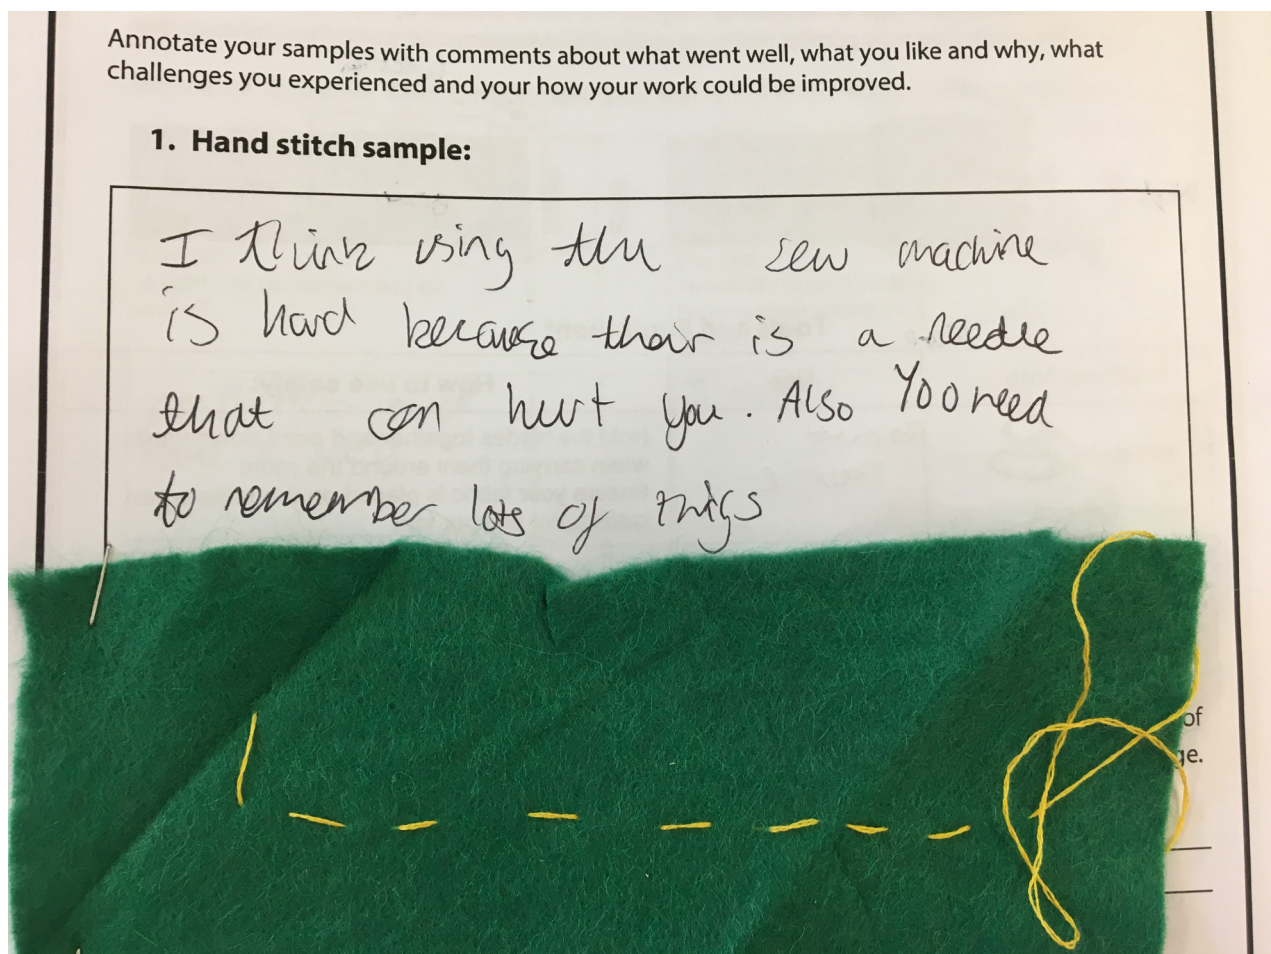 Annotate your samples with comments about what went well, what you like and why, what
challenges you experienced and your how your work could be improved.
1. Hand stitch sample:
I think using the sew machine
is hard because thair is a needle
that can hurt you. Also Yoo need
to remember lots of thigs
of
ge.